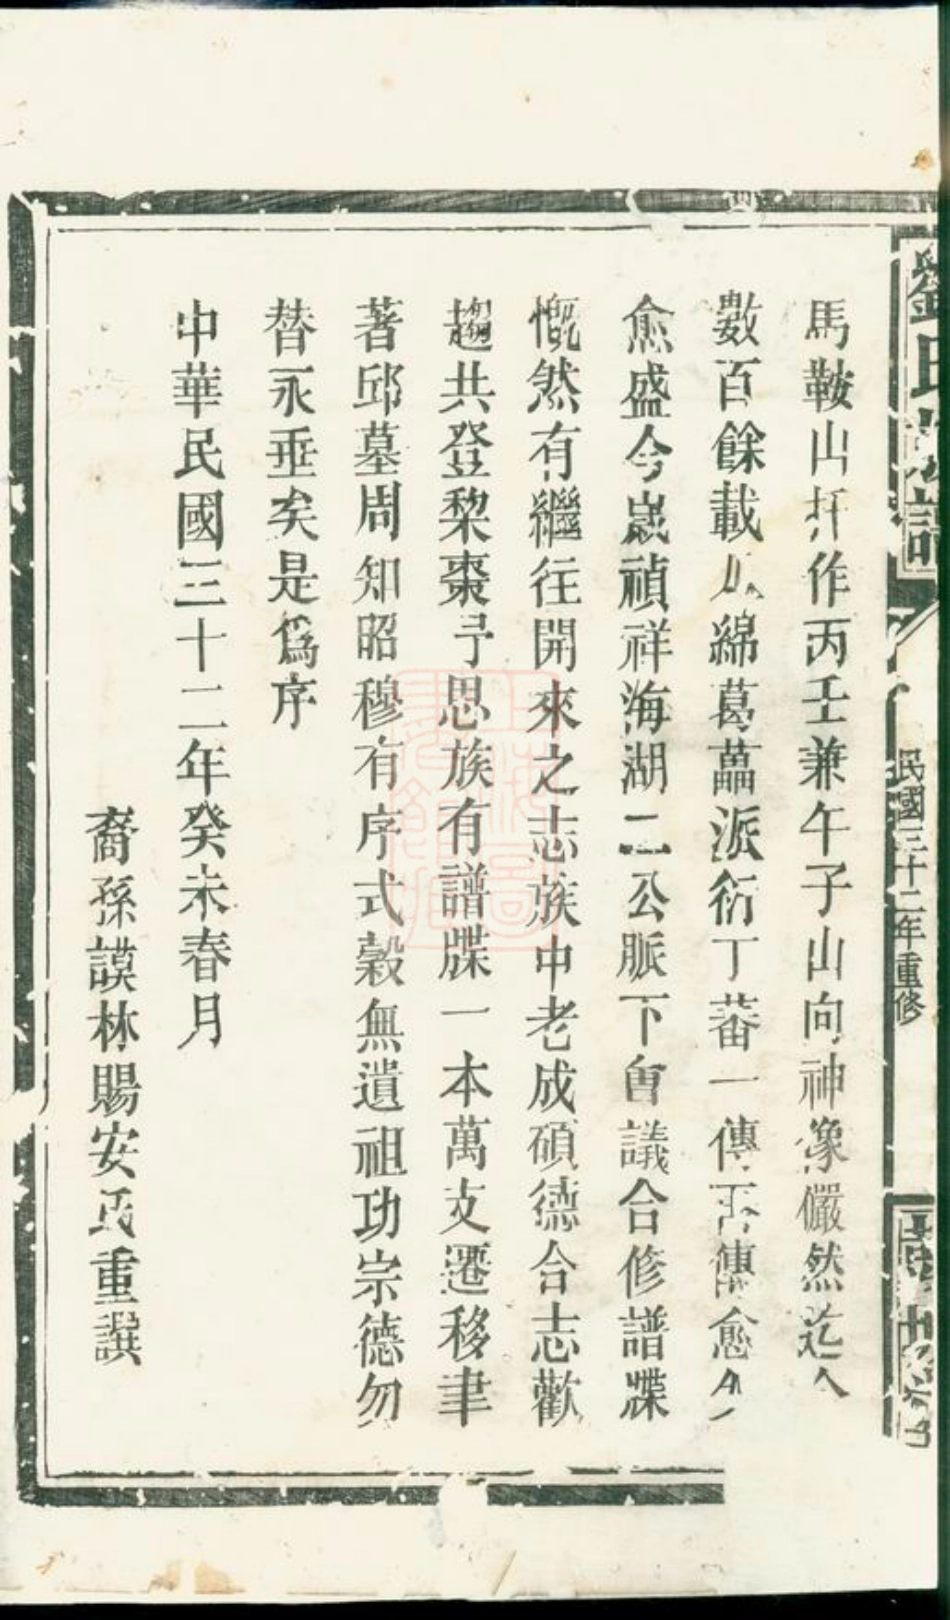 劉氏族譜
民國三十二年重修
馬鞍山扦作丙壬兼午子山向神像儼然迄今
數百餘載瓜綿葛藟派衍丁蕃一傳再傳愈久
愈盛今歲禎祥海湖二公脈下會議合修譜牒
慨然有繼往開來之志族中老成碩德合志歡
趨共登黎棗予思族有譜牒一本萬支遷移聿
著邱墓周知昭穆有序式穀無遺祖功宗德勿
替永垂矣是為序
中華民國三十二年癸未春月
裔孫謨林賜安氏重譔